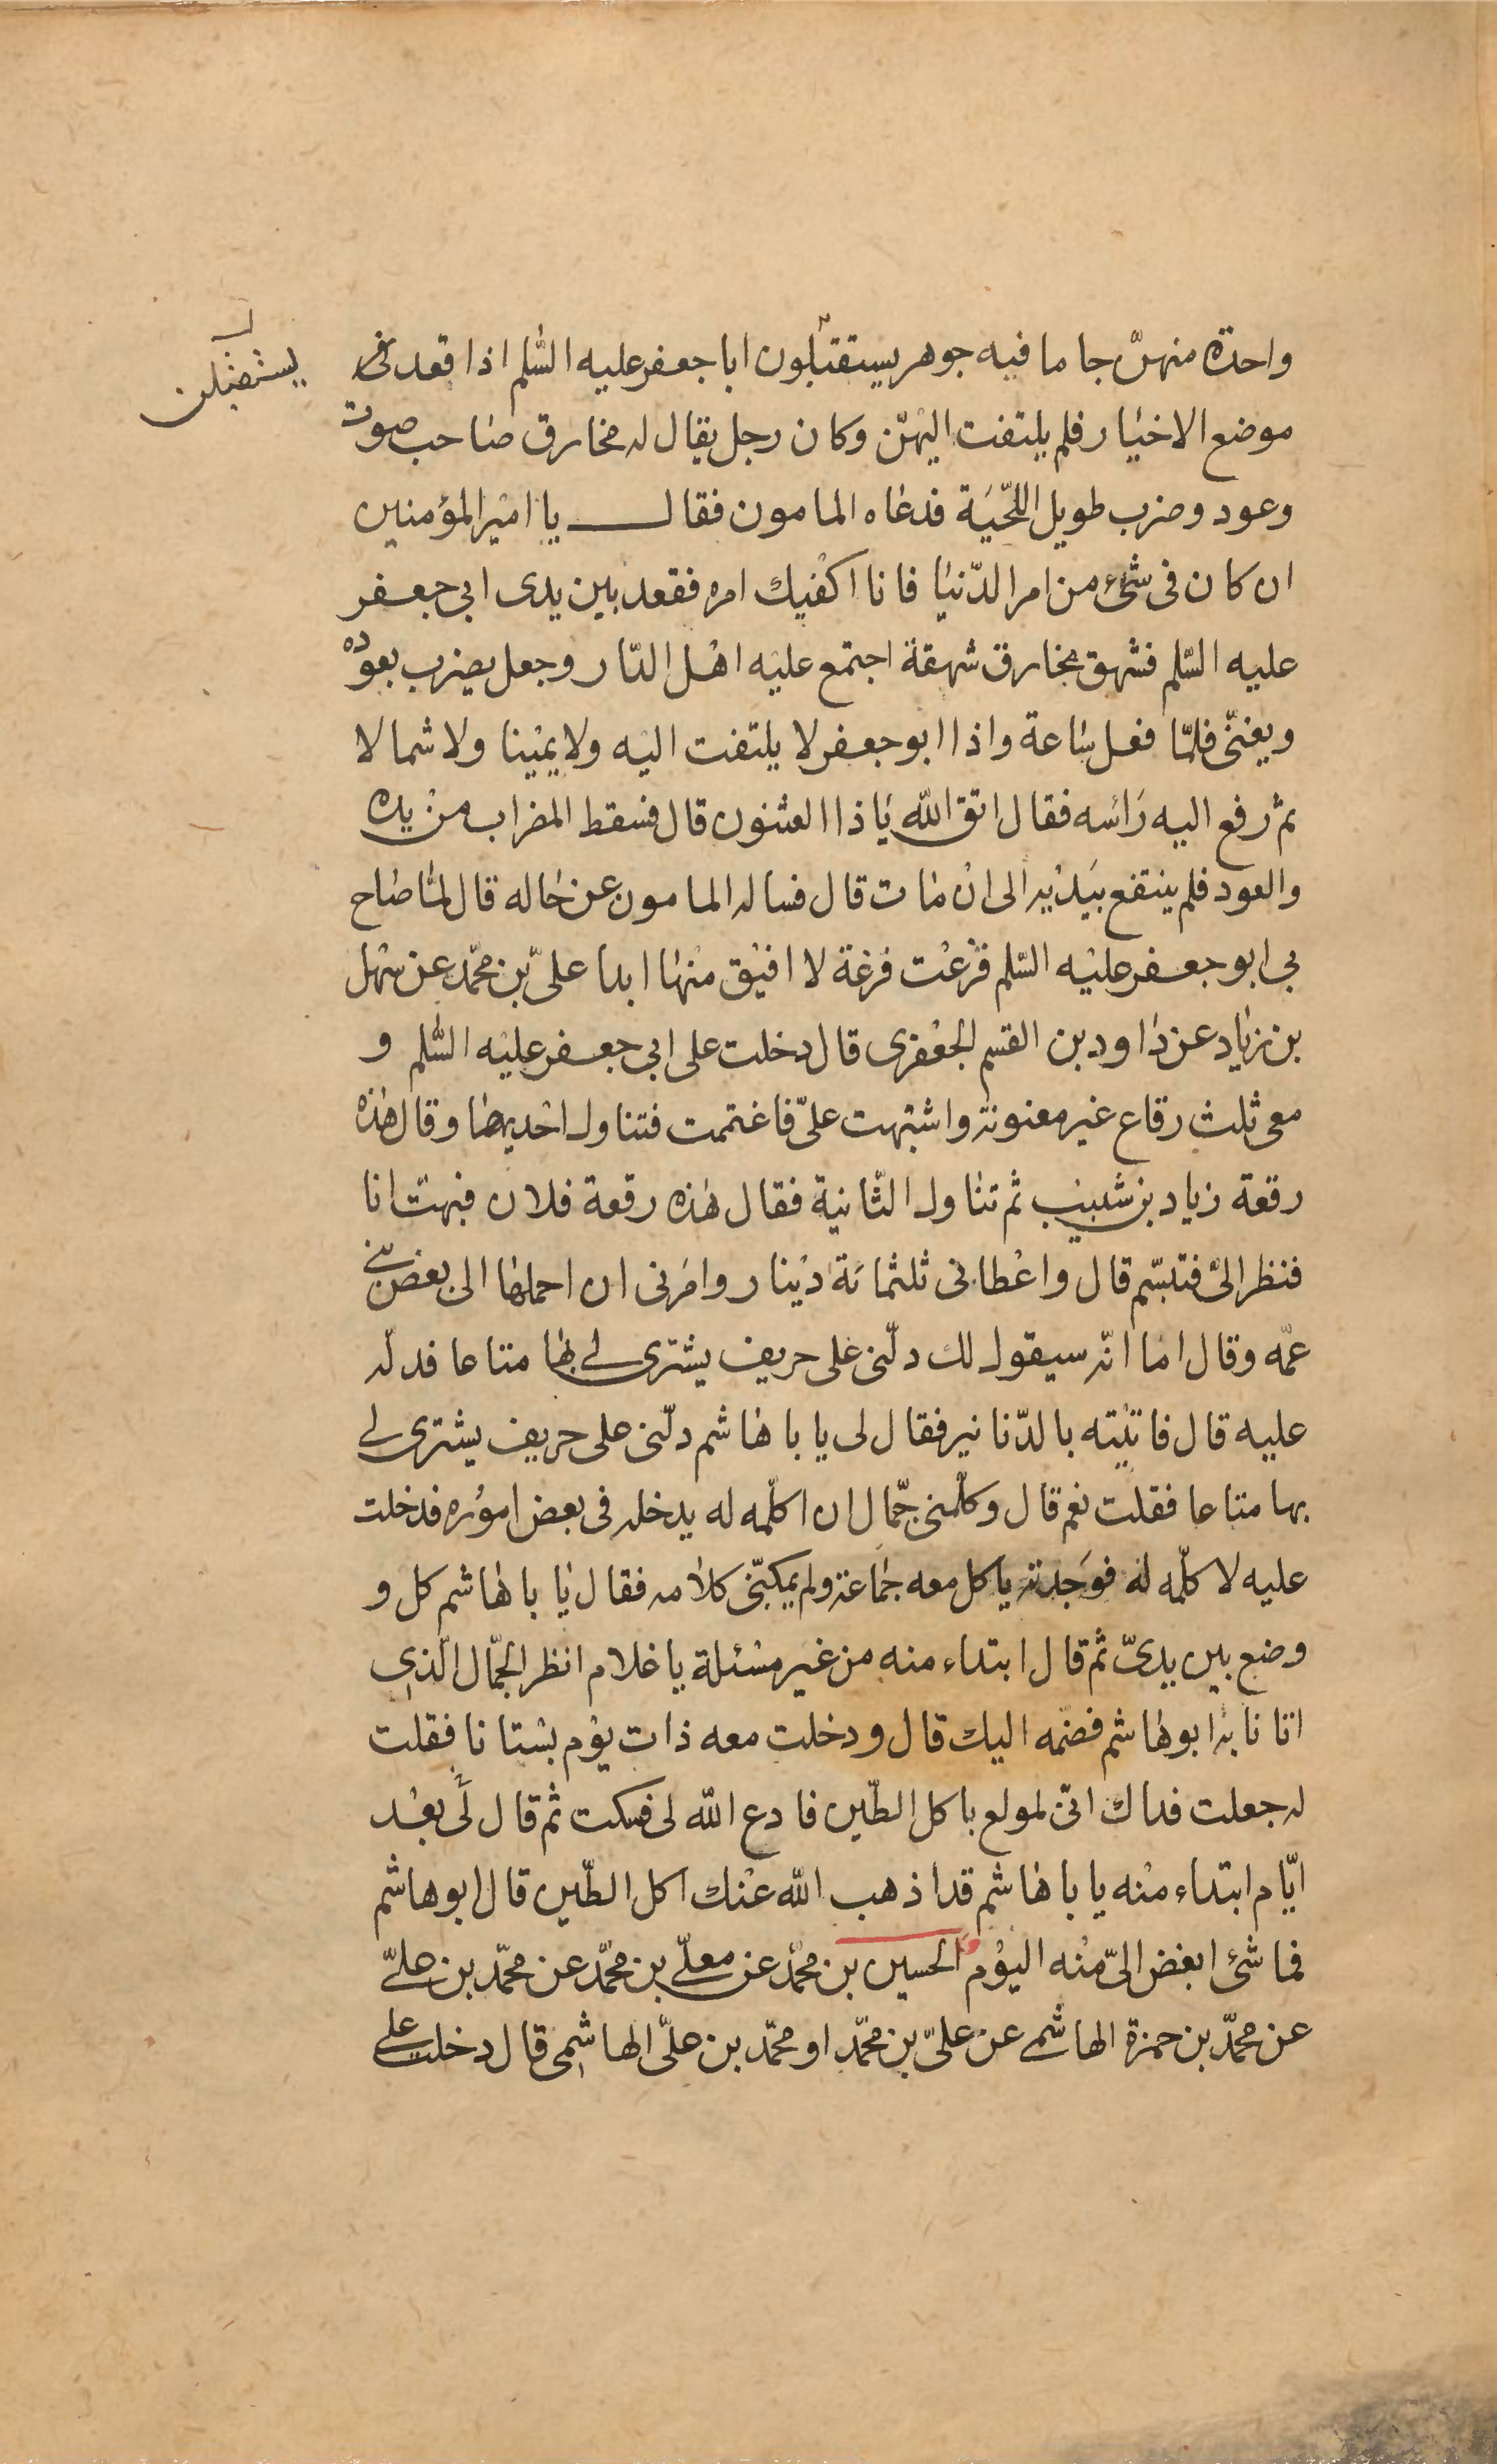 واحدة منهنّ جاما فيه جوهر يستقبلون ابا جعفر عليه السّلم اذا قعد فى
يستقبلن
موضع الاخيار فلم يلتفت اليهنّ وكان رجل يقال له مخارق صاحب صوت
وعود وضرب طويل اللّحيَة فدعاه المامون فقال يا امير المؤمنين
ان كان فى شئ من امر الدّنيا فانا اكفيك امره فقعد بين يدى ابى جعفر
عليه السّلم فشهق مخارق شهقة اجتمع عليه اهل الدّار وجعل يضرب بعوده
ويغنّى فلمّا فعل ساعة واذا ابو جعفر لا يلتفت اليه ولا يمينا ولا شمالا
ثم رفع اليه رَاسَه فقال اتق اللّه يا ذا العثنون قال فسقط المضراب من يده
والعود فلم ينتفع بيَدَيه الى ان مات قال فساله المامون عن حاله قال لمّا صاح
بى ابو جعفر عليه السّلم فزعت فزعة لا افيق منها ابدا علىّ بن محمّد عن سهل
بن زياد عن داود بن القسم الجعفرى قال دخلت على ابى جعفر عليه السّلم و
معى ثلث رقاع غير معنونة واشتبهت علىّ فاغتممت فتناول احديهما وقال هذه
رقعة زياد بن شبيب ثم تناول الثّانية فقال هذه رقعة فلان فبهتّ انا
فنظر الىّ فتبسّم قال واعطانى ثلثمائة دينار وامَرنى ان احملها الى بعض بنى
عمّه وقال اما انّه سيقول لك دلّنى على حريف يشترى لى بها متاعا فدلّه
عليه قال فاتَيته بالدّنانير فقال لى يا با هاشم دلّنى على حريف يشترى لى
بها متاعا فقلت نعم قال وكلّمنى جمّال ان اكلّمه له يدخله فى بعض اموره فدخلت
عليه لاكلّمه له فوَجدته ياكل معه جماعة ولم يمكنّى كلامه فقال يا با هاشم كل و
وضع بين يدىّ ثم قال ابتداء منه من غير مسئلة يا غلام انظر الجمّال الّذى
اتانا به ابو هاشم فضمّه اليك قال ودخلت معه ذات يوم بستانا فقلت
له جعلت فداك انّى لمولع باكل الطّين فادع اللّه لى فسكت ثم قال لى بعد
ايّام ابتداء منه يا با هاشم قد اذهب اللّه عنك اكل الطّين قال ابو هاشم
فما شئ ابغض الىّ منه اليوم الحسين بن محمّد عن معلّى بن محمّد عن محمّد بن علىّ
عن محمّد بن حمزة الهاشمى عن علىّ بن محمّد او محمّد بن علىّ الهاشمى قال دخلت على